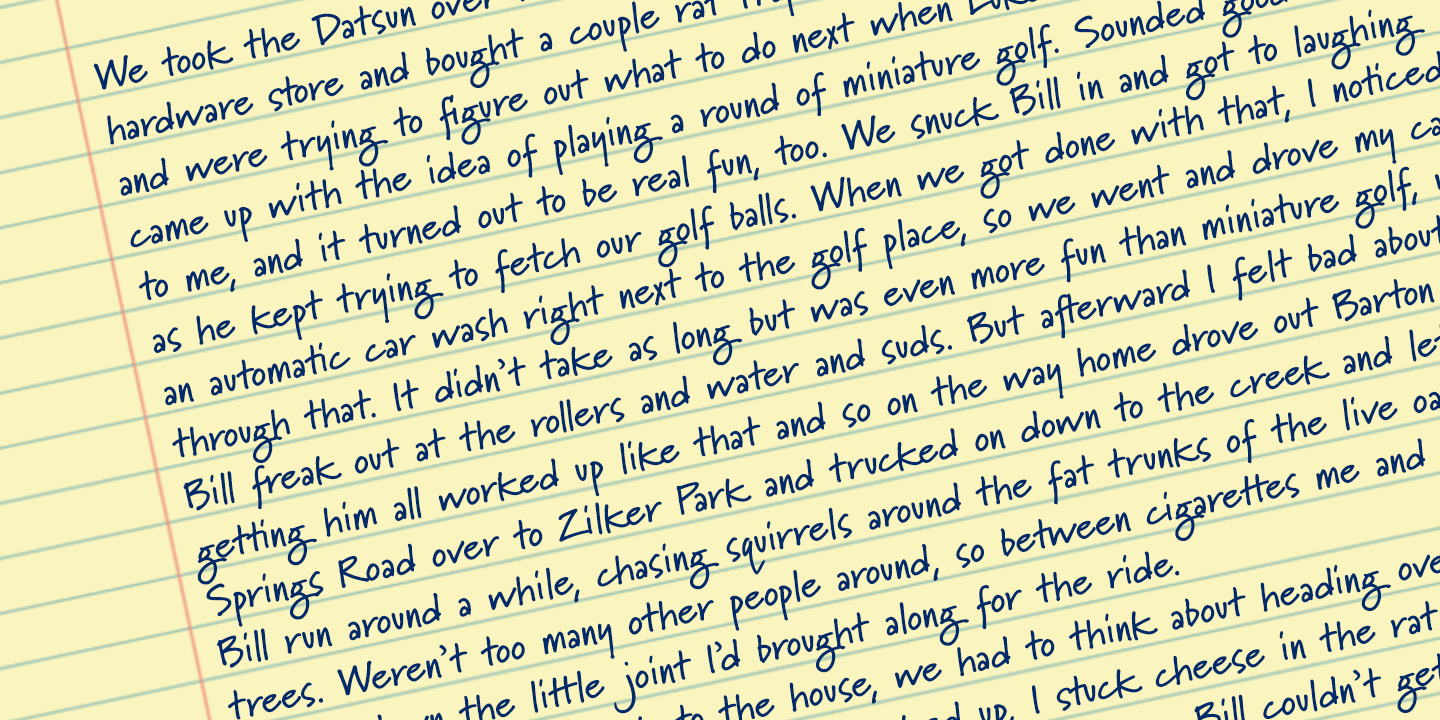 We took the Datsun over
hardware store and bought a couple rat
and were trying to figure out what to do next when
came up with the idea of playing a round of miniature golf. Sounded good
to me, and it turned out to be real fun, too. We snuck Bill in and got to laughing
as he kept trying to fetch our golf balls. When we got done with that, I noticed
an automatic car wash right next to the golf place, so we went and drove my
through that. It didn't take as long but was even more fun than miniature golf,
Bill freak out at the rollers and water and suds. But afterward I felt bad about
getting him all worked up like that and so on the way home drove out Barton
Springs Road over to Zilker Park and trucked on down to the creek and let
Bill run around a while, chasing squirrels around the fat trunks of the live
trees. Weren't too many other people around, so between cigarettes me and
the little joint I'd brought along for the ride.
to the house, we had to think about heading
up, I stuck cheese in the rat
Bill couldn't get